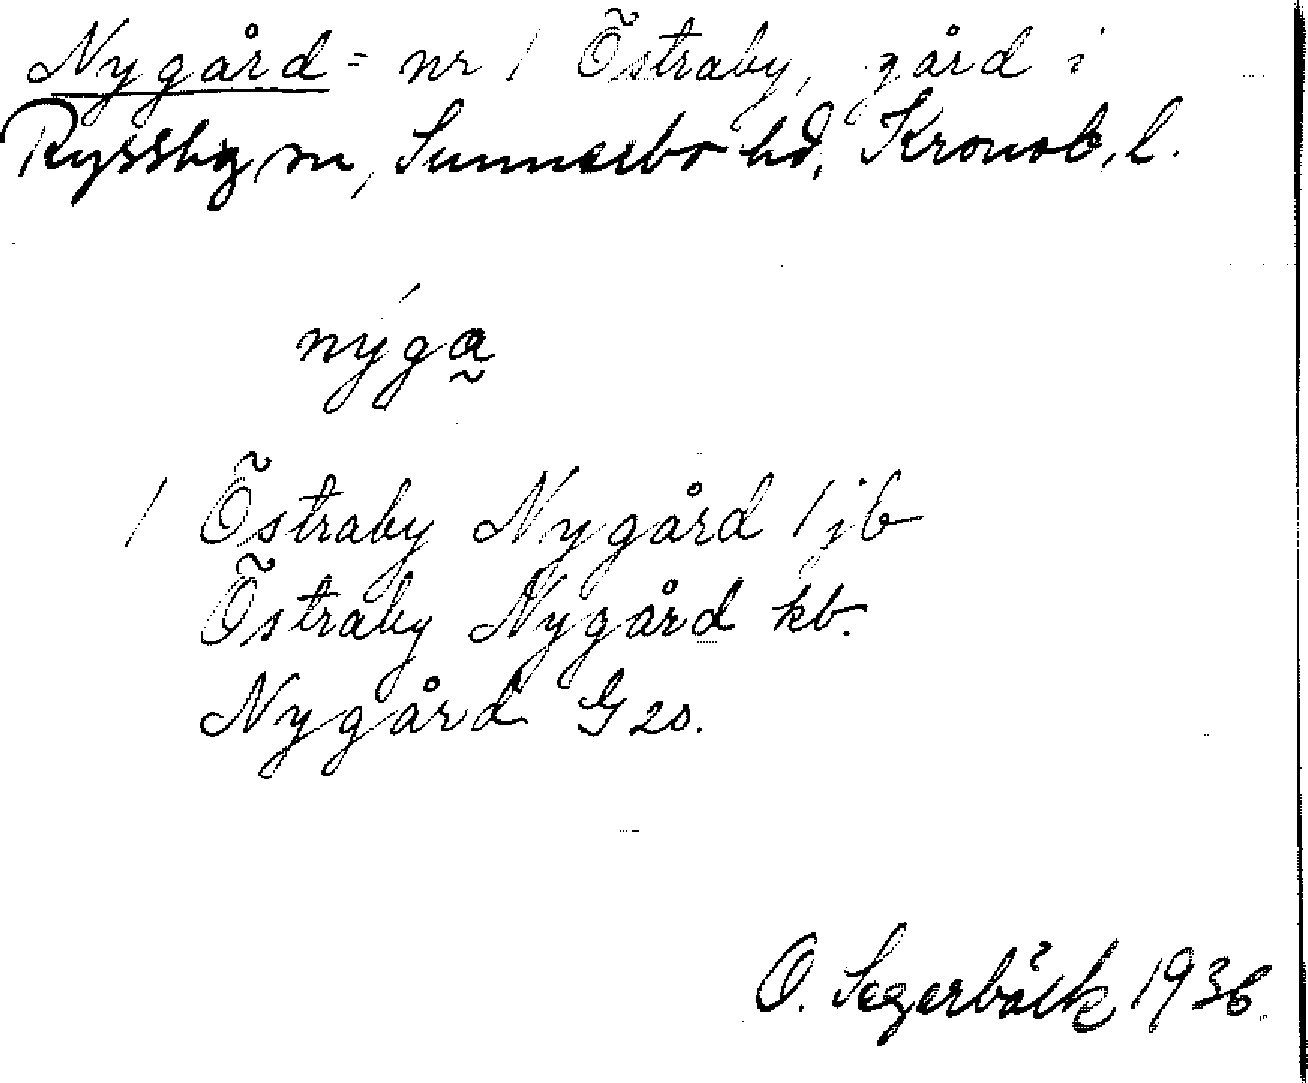 Nygård = nr 1 Östraby, gård i
Ryssby sn, Sunnerbo hd, Kronob. l.
nýga̰
1 Östraby Nygård 1 jb
Östraby Nygård kb.
Nygård G 20.
O. Segerbäck 1936